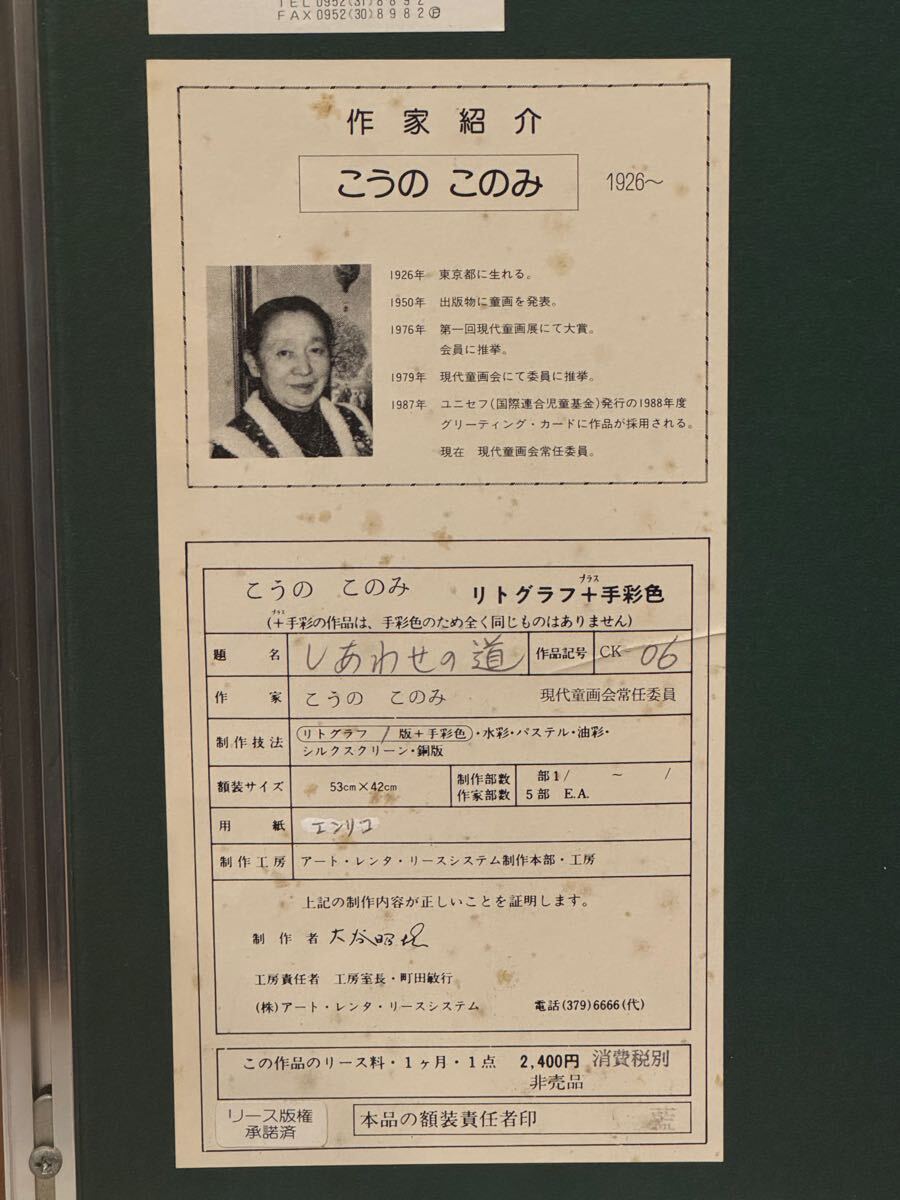 TEL 0952(31)8892
FAX 0952(30)8982
作家紹介
こうの このみ
1926〜
1926年 東京都に生れる。
1950年 出版物に童画を発表。
1976年 第一回現代童画展にて大賞。
会員に推挙。
1979年 現代童画会にて委員に推挙。
1987年 ユニセフ(国際連合児童基金)発行の1988年度
グリーティング・カードに作品が採用される。
現在 現代童画会常任委員。
プラス
こうの このみ リトグラフ+手彩色
プラス
(+手彩の作品は、手彩色のため全く同じものはありません)
題名 しあわせの道 作品記号 CK- 06
作家 こうの このみ 現代童画会常任委員
制作技法 リトグラフ / 版+手彩色・水彩・パステル・油彩・
シルクスクリーン・銅版
額装サイズ 53cm×42cm 制作部数 部1/ 〜 /
作家部数 5部 E.A.
用紙 エンリコ
制作工房 アート・レンタ・リースシステム制作本部・工房
上記の制作内容が正しいことを証明します。
制作者 大谷昭
工房責任者 工房室長・町田敏行
(株)アート・レンタ・リースシステム 電話(379)6666(代)
この作品のリース料・1ヶ月・1点 2,400円 消費税別
非売品
リース版権
承諾済
本品の額装責任者印 藍